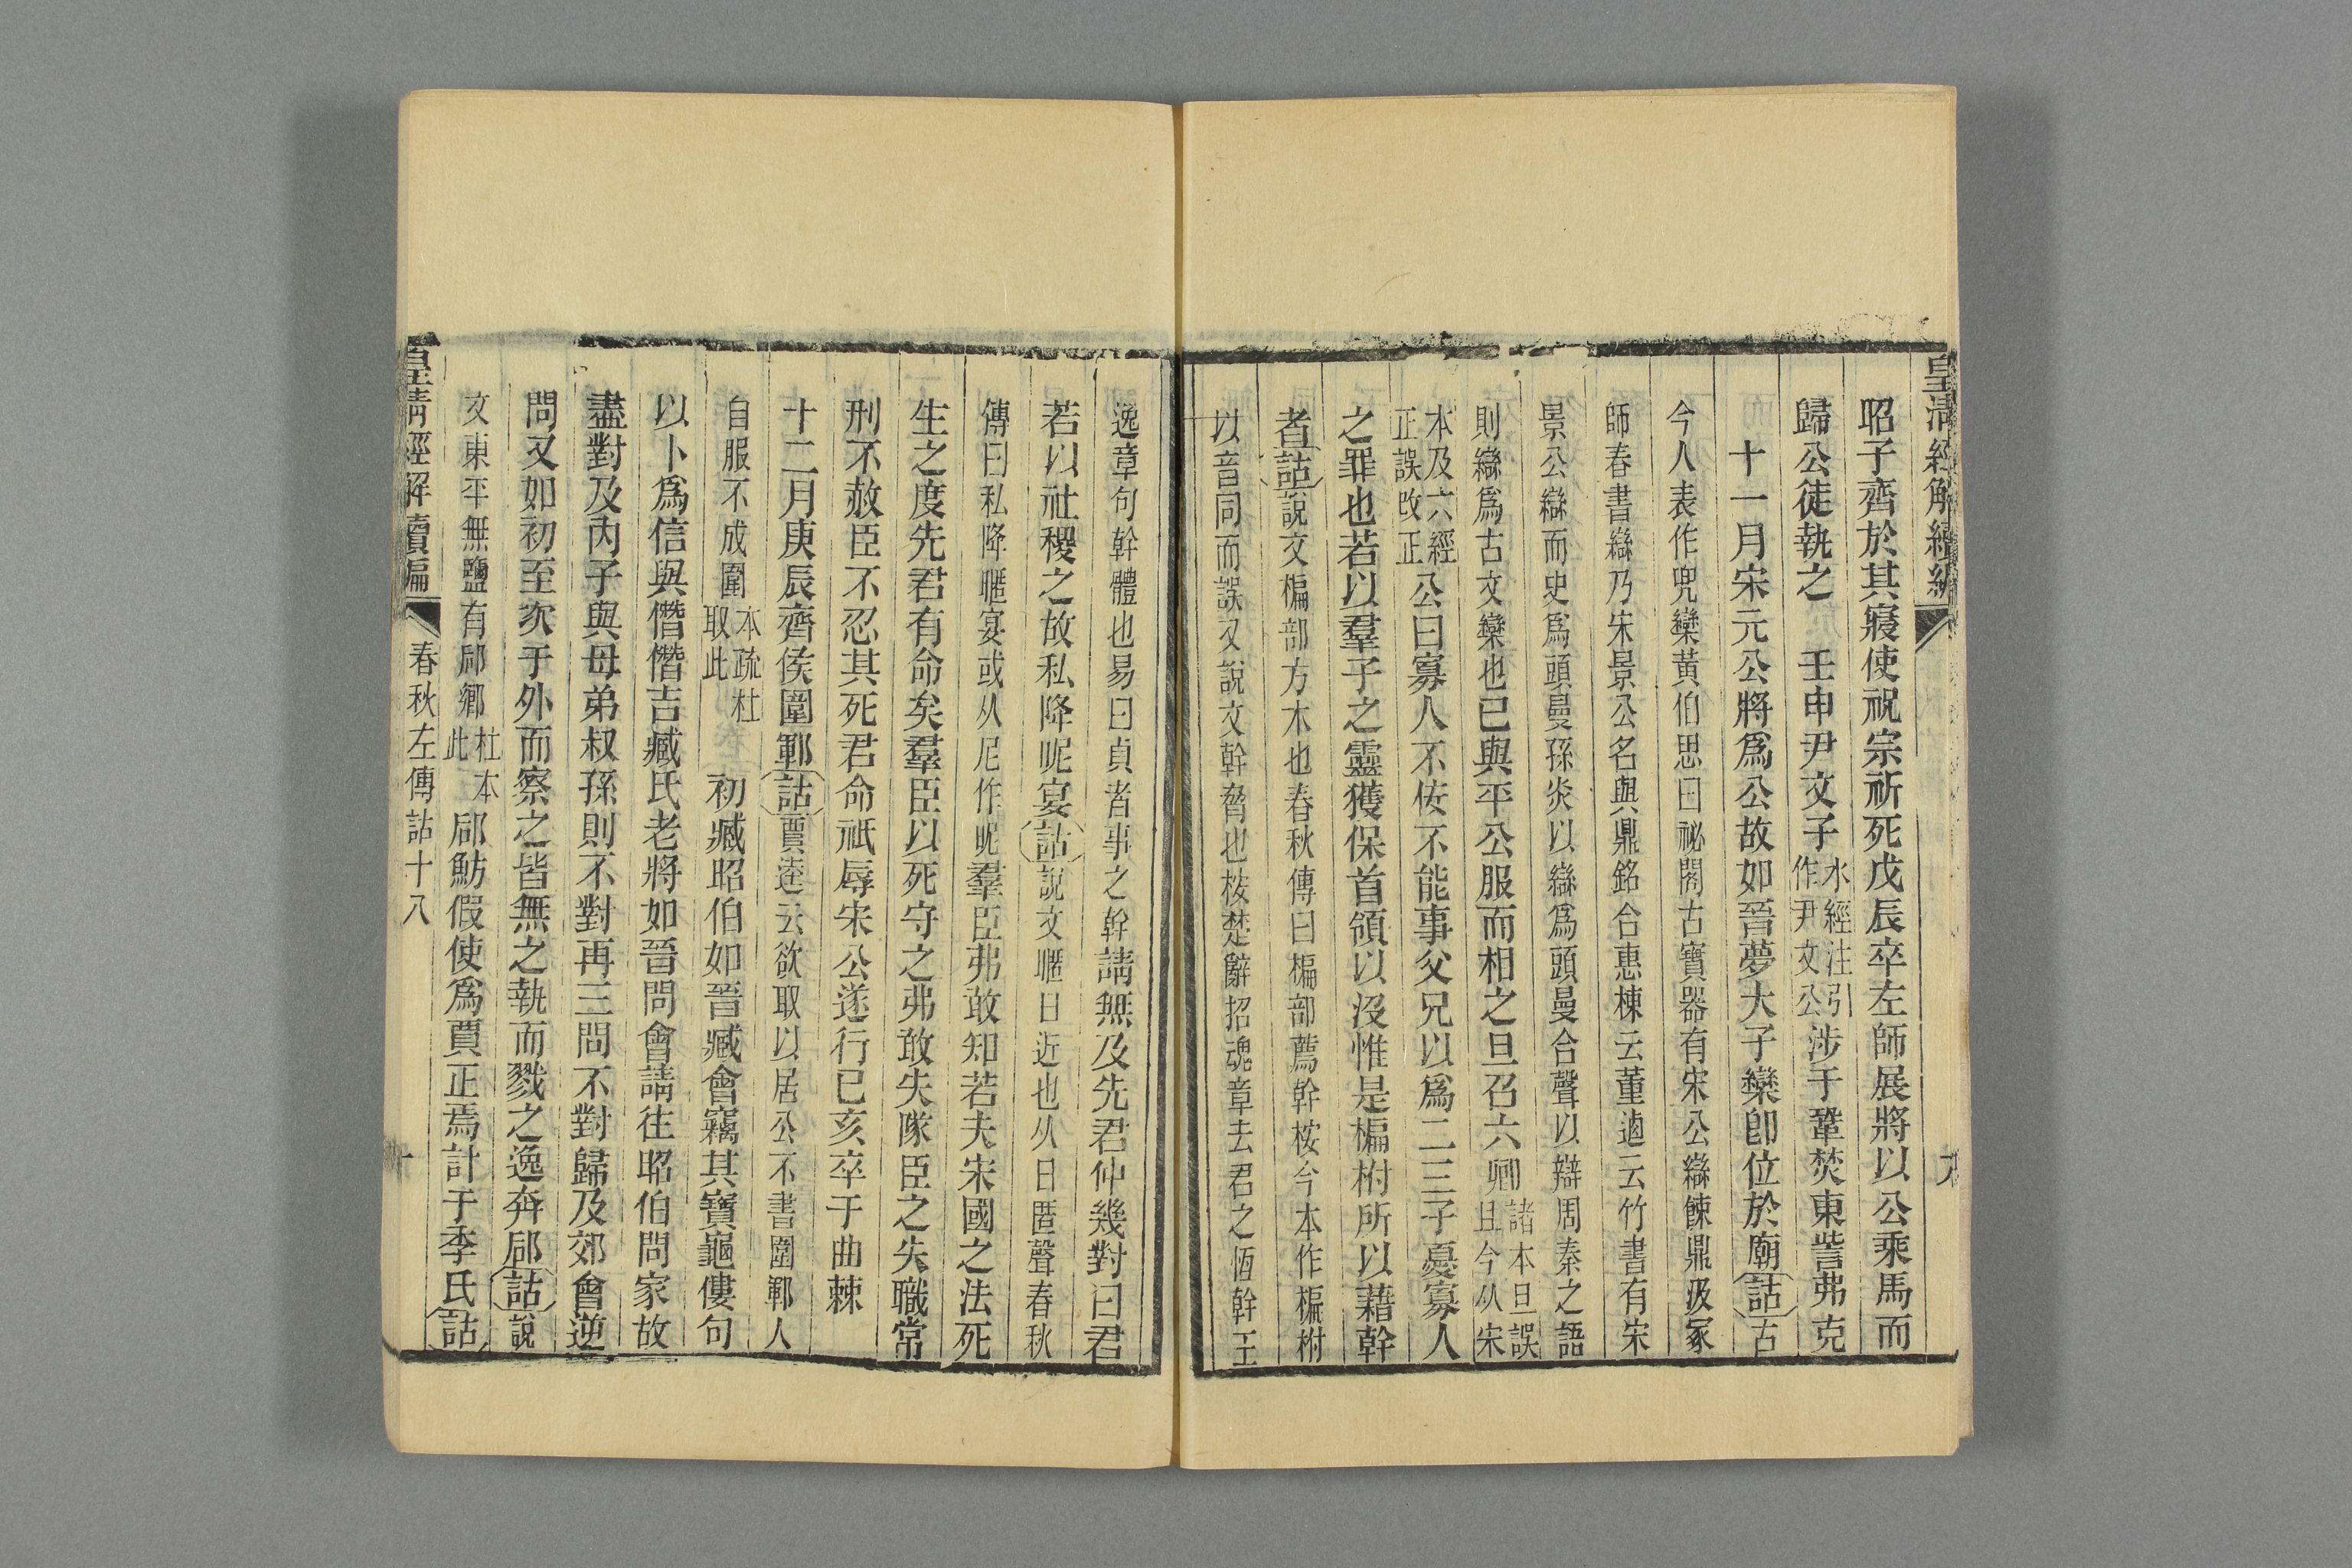 皇清經解續編
昭子齊於其寢使祝宗祈死戊辰卒左師展將以公乘馬而
歸公徒執之　壬申尹文子水經注引作尹文公涉于鞏焚東訾弗克
十一月宋元公將爲公故如晉夢大子欒卽位於廟詁古
今人表作兜欒黃伯思曰祕閣古寶器有宋公䜌餗鼎汲冢
師春書䜌乃宋景公名與鼎銘合惠棟云董逌云竹書有宋
景公䜌而史爲頭曼孫炎以䜌爲頭曼合聲以辯周秦之語
則䜌爲古文欒也已與平公服而相之旦召六卿諸本旦誤且今从宋
本及六經正誤改正公曰寡人不佞不能事父兄以爲二三子憂寡人
之罪也若以羣子之靈獲保首領以沒惟是楄柎所以藉幹
者詁說文楄部方木也春秋傳曰楄部薦幹桉今本作楄柎
以音同而誤又說文幹脅也桉楚辭招魂章去君之恆幹王
逸章句幹體也易曰貞者事之幹請無及先君仲幾對曰君
若以社稷之故私降昵宴詁說文暱日近也从日匿聲春秋
傳曰私降暱宴或从尼作昵羣臣弗敢知若夫宋國之法死
生之度先君有命矣羣臣以死守之弗敢失隊臣之失職常
刑不赦臣不忍其死君命祇辱宋公遂行已亥卒于曲棘
十二月庚辰齊侯圍鄆詁賈逵云欲取以居公不書圍鄆人
自服不成圍本疏杜取此　初臧昭伯如晉臧會竊其寶龜僂句
以卜爲信與僭僭吉臧氏老將如晉問會請往昭伯問家故
盡對及內子與母弟叔孫則不對再三問不對歸及郊會逆
問又如初至次于外而察之皆無之執而戮之逸奔郈詁說
文東平無鹽有郈鄉杜本此郈魴假使爲賈正焉計于季氏詁
皇清經解續編　春秋左傳詁十八